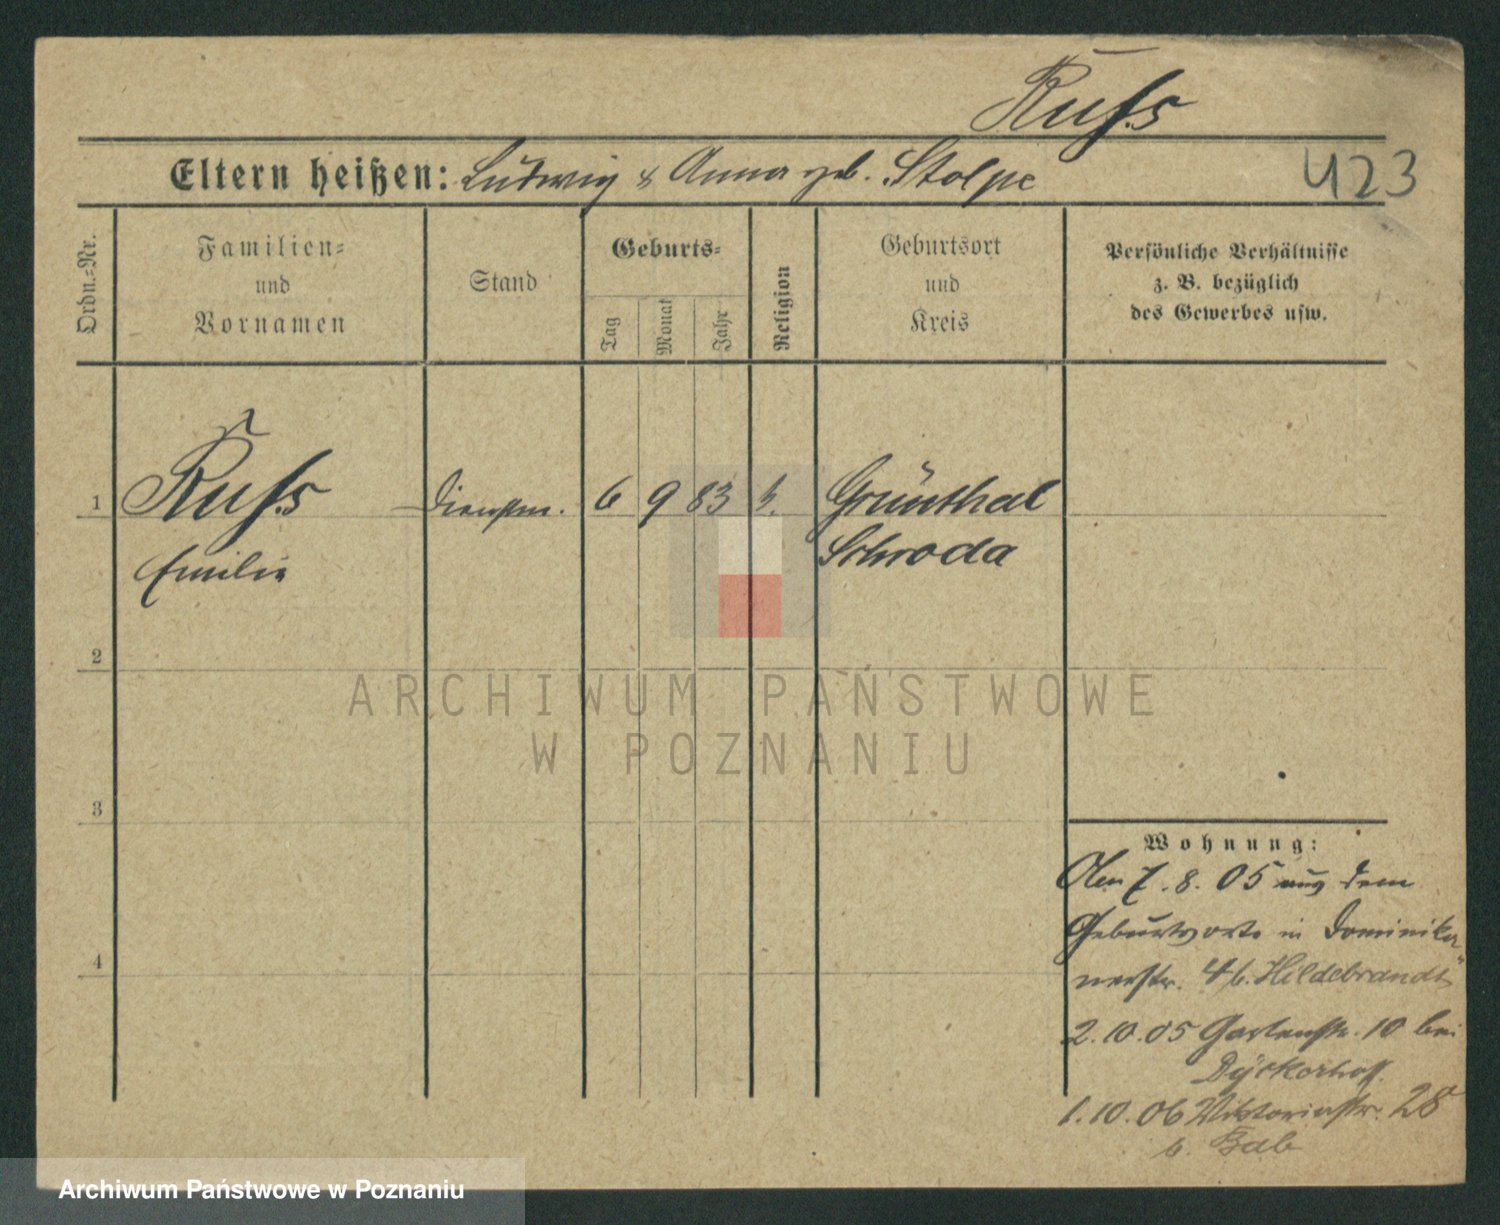 Rufs
Eltern heißen: Ludwig & Anna geb. Stolpe
423
Ordn.=Nr.
Familien=
und
Vornamen
Stand
Geburts=
Tag
Monat
Jahr
Religion
Geburtsort
und
Kreis
Persönliche Verhältnisse
z. B. bezüglich
des Gewerbes usw.
1 Rufs Dienstm. 6 9 83 Grünthal
Emilie Schroda
2
ARCHIWUM PAŃSTWOWE
W POZNANIU
3
4
Wohnung:
7.8.05 aus dem
Geburtsorte in Dominika
nerstr. 4 b. Hildebrandt
2.10.05 Gartenstr. 10 bei
Dyckerhoff.
1.10.06 Viktoriastr. 28
b. Bab
Archiwum Państwowe w Poznaniu